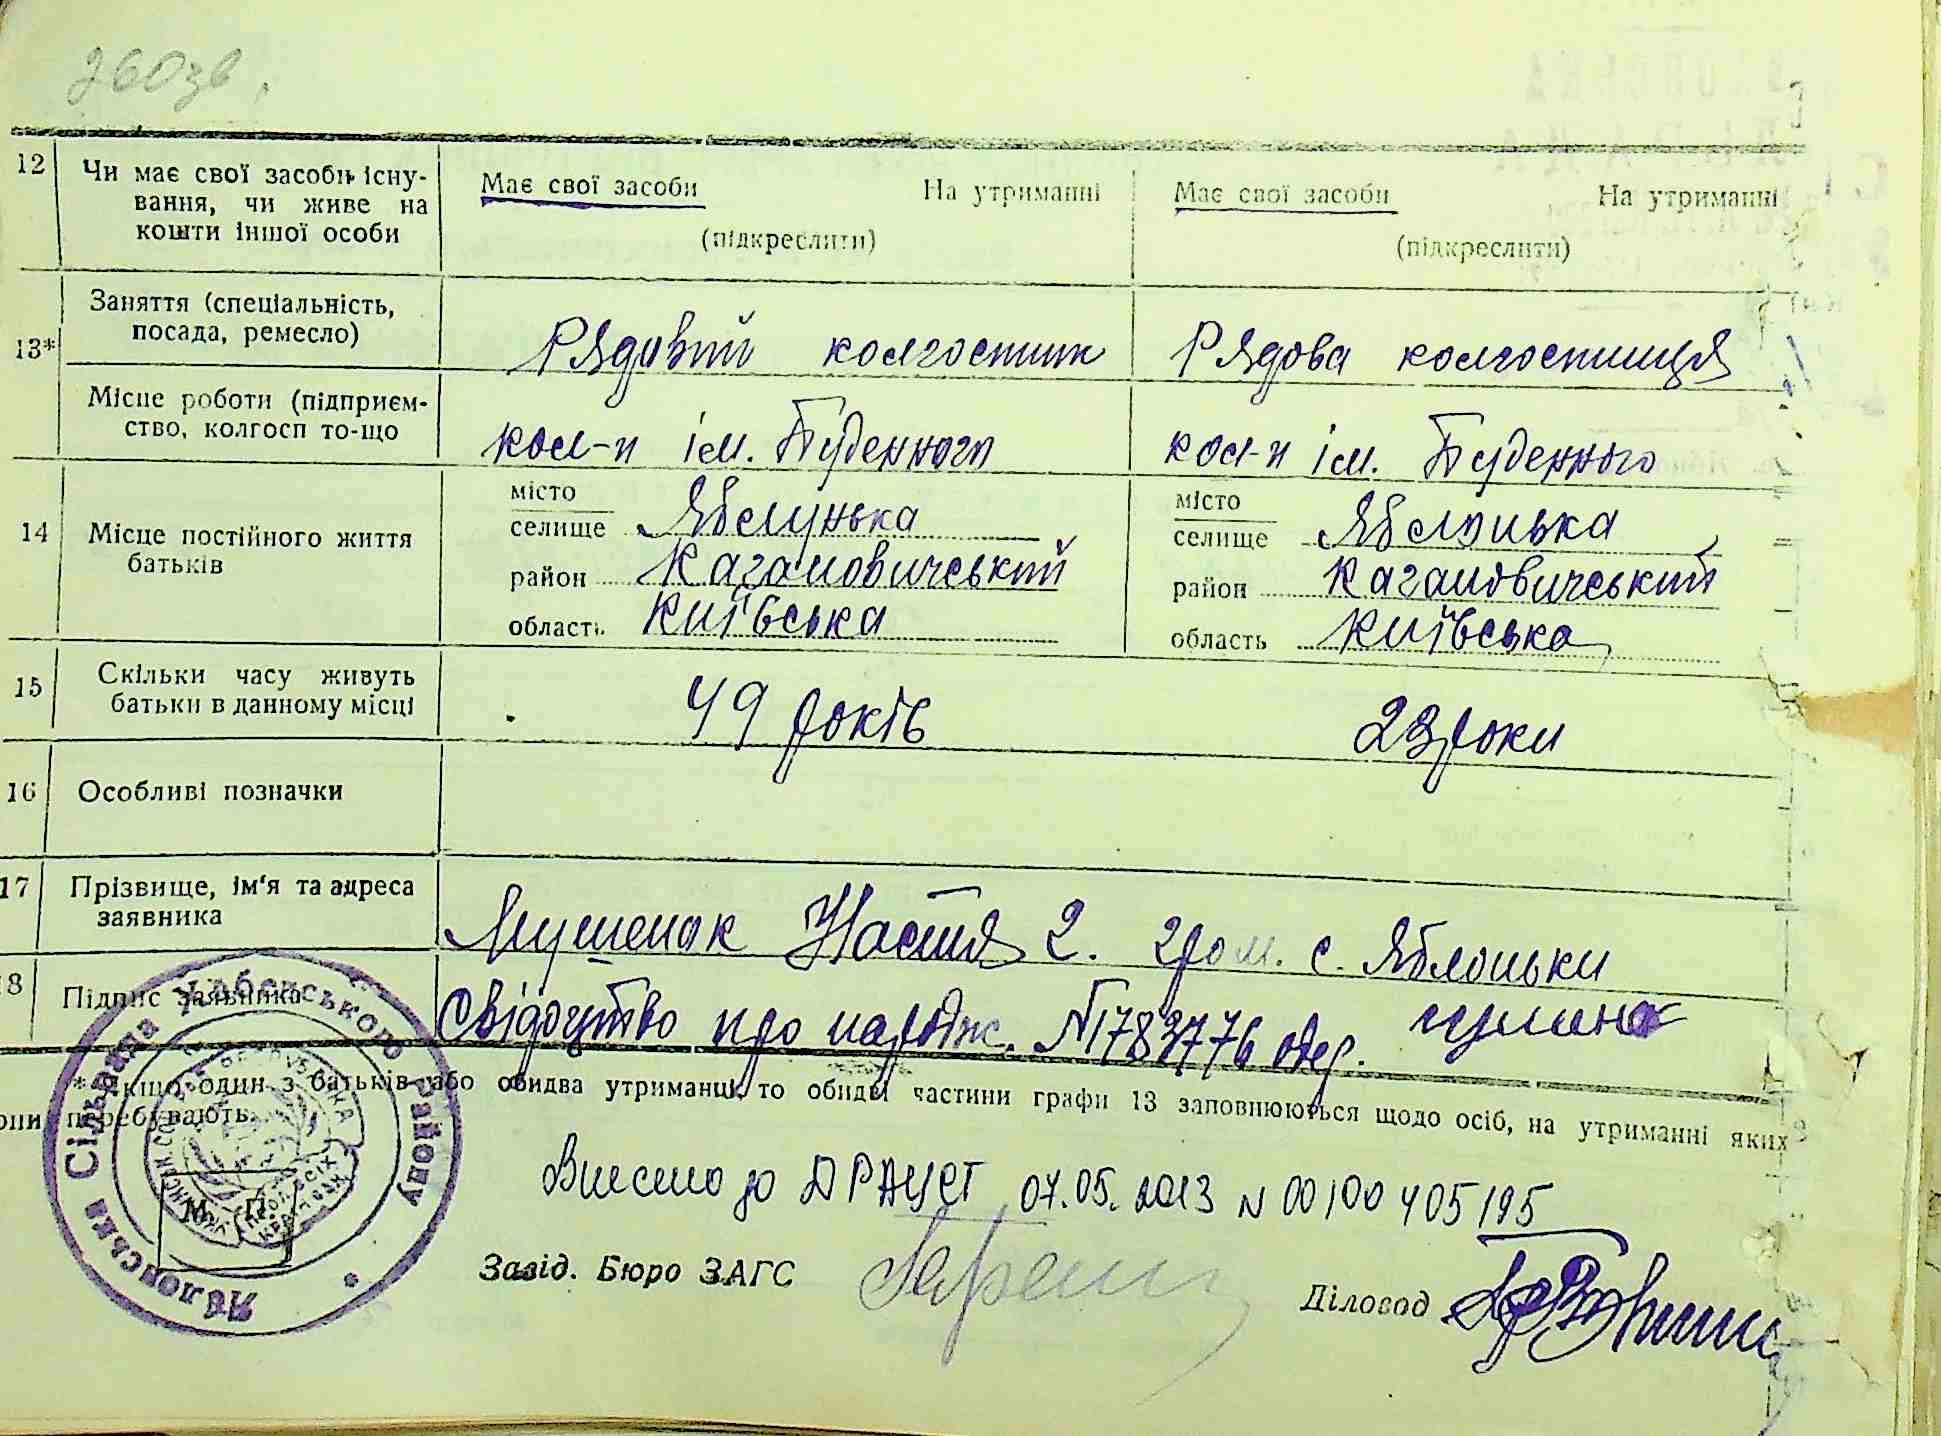 260зв.
12 Чи має свої засоби існу- Має свої засоби На утриманні Має свої засоби На утриманні
вання, чи живе на
кошти іншої особи (підкреслити) (підкреслити)
13* Заняття (спеціальність,
посада, ремесло) Рядовий колгоспник Рядова колгоспниця
Місце роботи (підприєм-
ство, колгосп то-що кол-п ім. Буденного кол-п ім. Буденного
14 Місце постійного життя
батьків
місто місто
селище Яблунька селище Яблонька
район Кагановичський район Кагановичський
область Київська область Київська
15 Скільки часу живуть
батьки в данному місці 49 років 23 роки
16 Особливі позначки
17 Прізвище, ім'я та адреса
заявника Настя 2. гром. с. Яблоньки
18 Підпис заявника Свідоцтво про народж. №1783776 одер.
* Якщо один з батьків або обидва утриманці, то обидві частини графи 13 заповнюються щодо осіб, на утриманні яких
вони перебувають.
Внесено до ДРАЦСГ 07.05.2013 N 00100405195
М. П.
Завід. Бюро ЗАГС Діловод
Сільрада Хабенського району